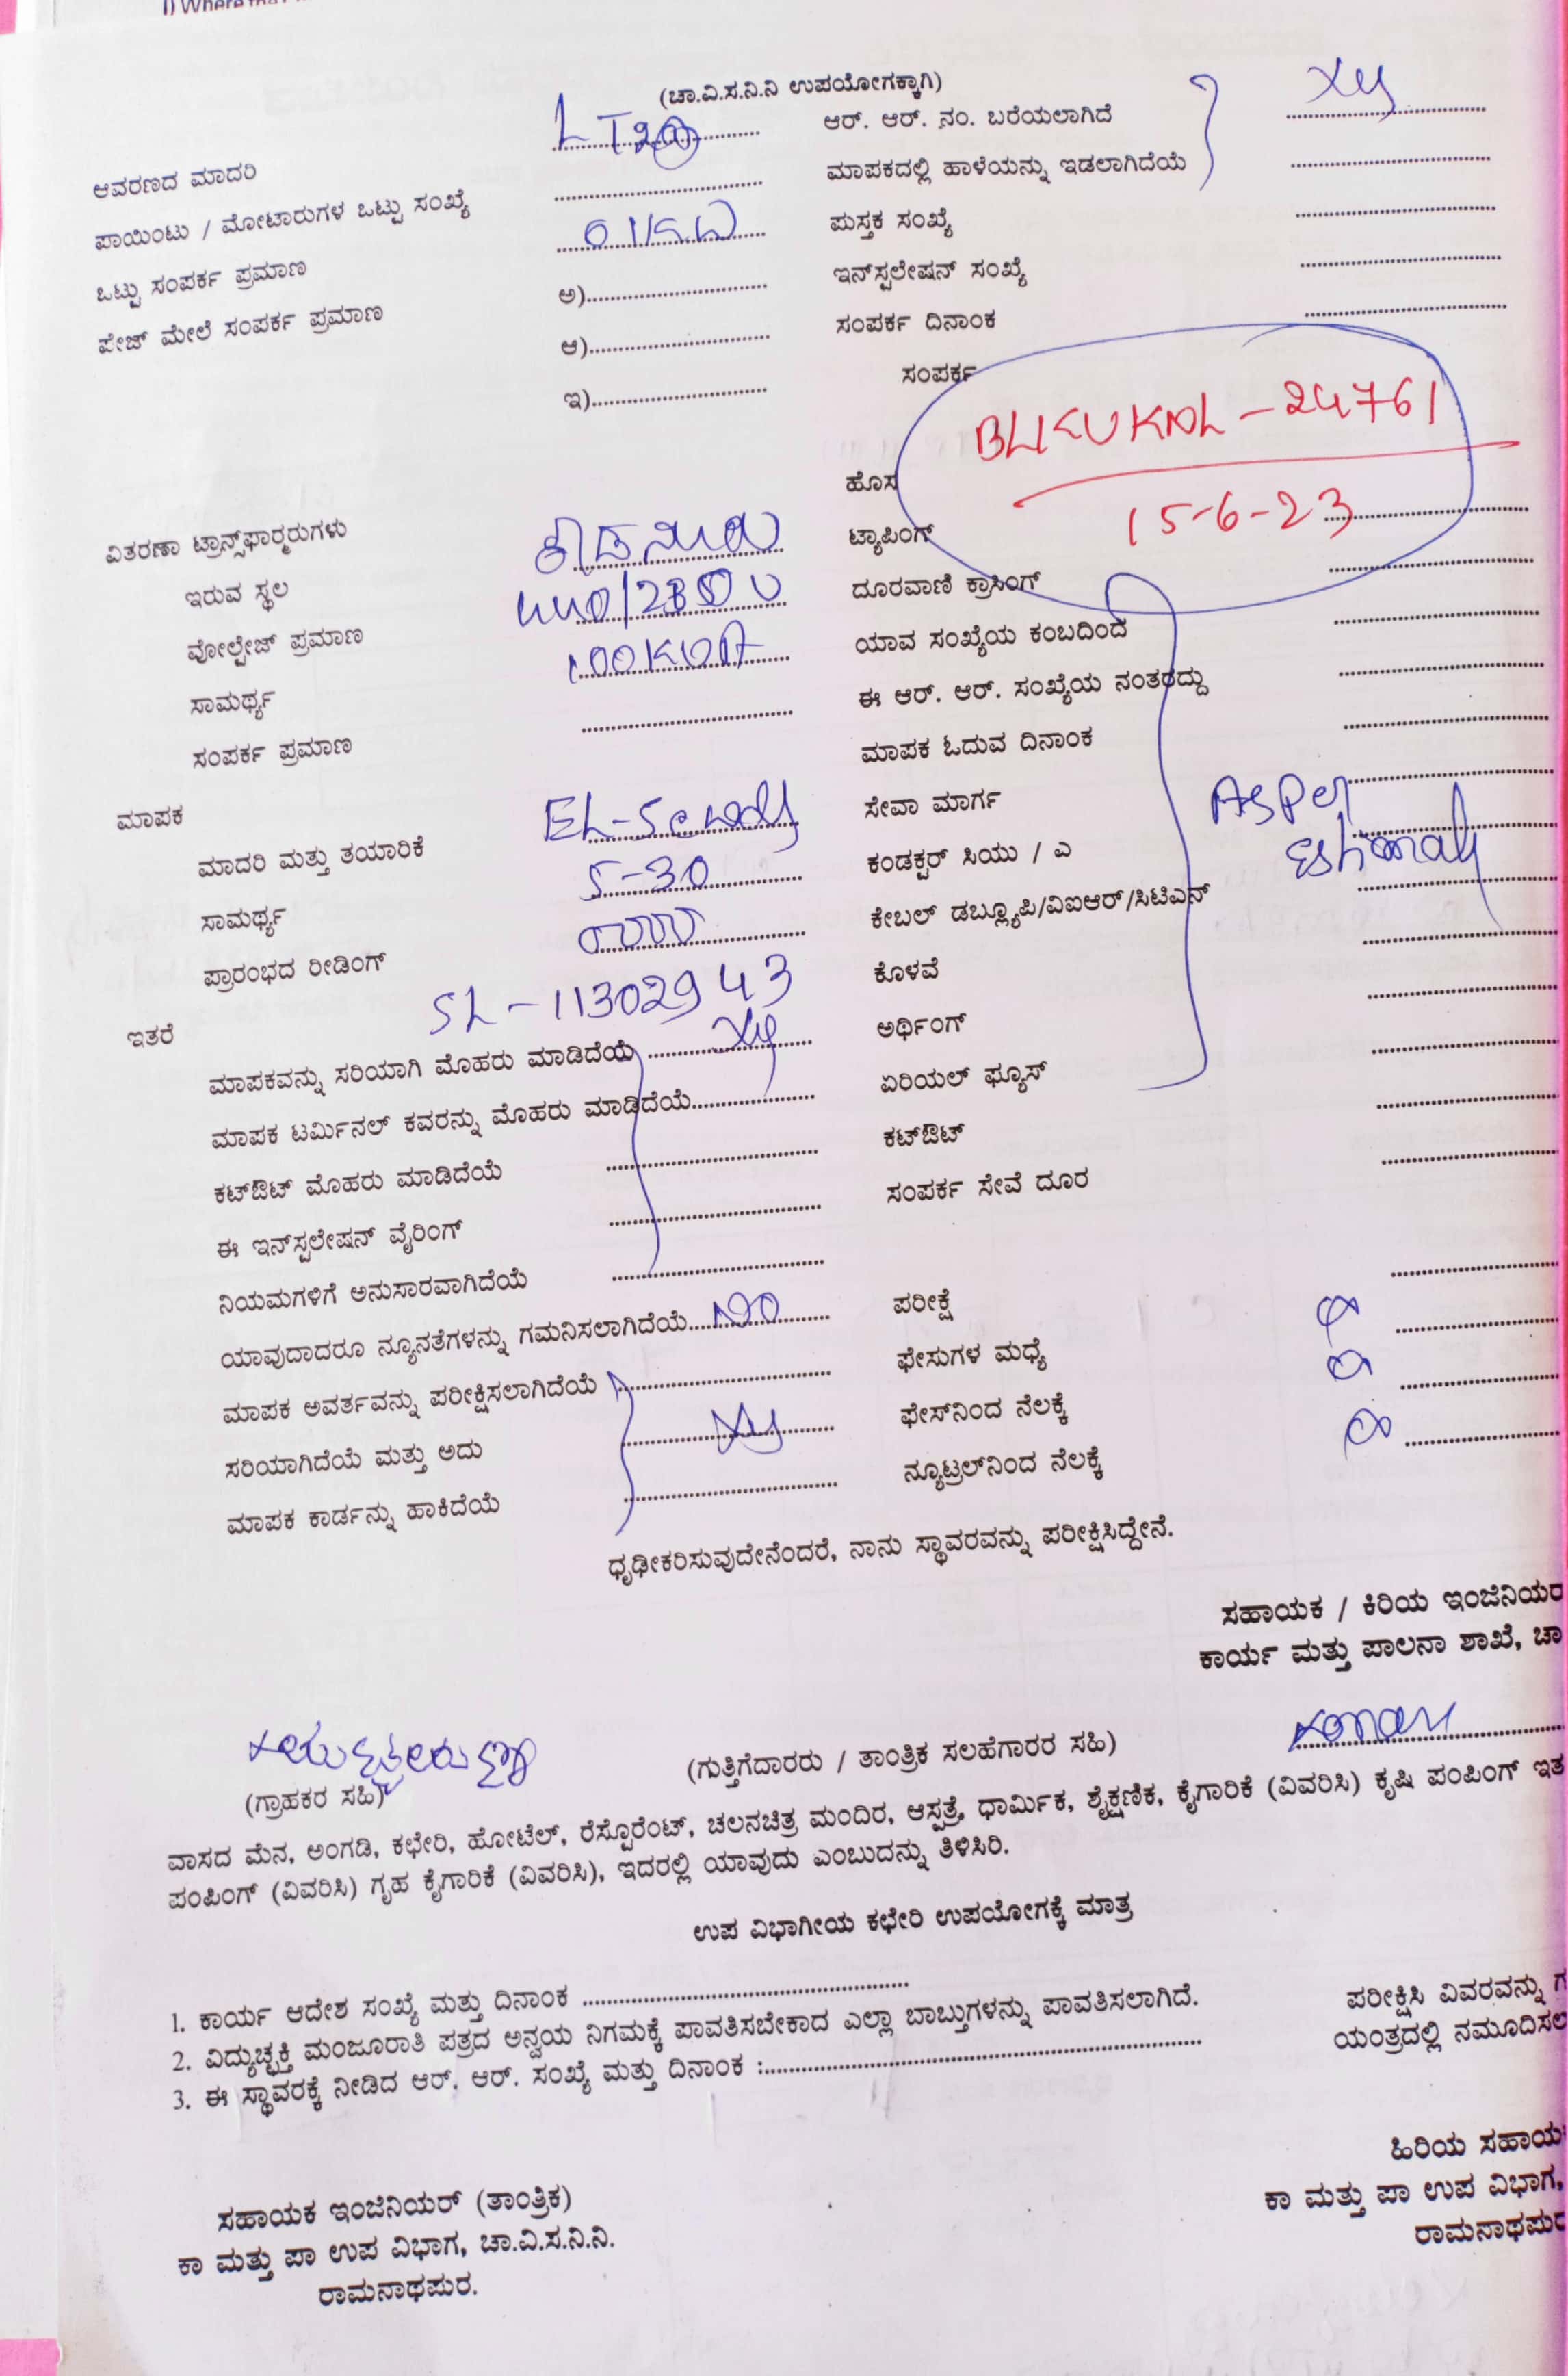 I) Where the
(ಚಾ.ವಿ.ಸ.ನಿ.ನಿ ಉಪಯೋಗಕ್ಕಾಗಿ)
ಆವರಣದ ಮಾದರಿ LT2
ಪಾಯಿಂಟು / ಮೋಟಾರುಗಳ ಒಟ್ಟು ಸಂಖ್ಯೆ
ಒಟ್ಟು ಸಂಪರ್ಕ ಪ್ರಮಾಣ
ಪೇಜ್ ಮೇಲೆ ಸಂಪರ್ಕ ಪ್ರಮಾಣ ಅ)
ಆ)
ಇ)
ವಿತರಣಾ ಟ್ರಾನ್ಸ್‌ಫಾರ್‍ಮರುಗಳು
ಇರುವ ಸ್ಥಲ
ವೋಲ್ಟೇಜ್ ಪ್ರಮಾಣ
ಸಾಮರ್ಥ್ಯ 100KVA
ಸಂಪರ್ಕ ಪ್ರಮಾಣ
ಮಾಪಕ
ಮಾದರಿ ಮತ್ತು ತಯಾರಿಕೆ
ಸಾಮರ್ಥ್ಯ 5-30
ಪ್ರಾರಂಭದ ರೀಡಿಂಗ್
SL-11302943
ಇತರೆ
ಮಾಪಕವನ್ನು ಸರಿಯಾಗಿ ಮೊಹರು ಮಾಡಿದೆಯೆ
ಮಾಪಕ ಟರ್ಮಿನಲ್ ಕವರನ್ನು ಮೊಹರು ಮಾಡಿದೆಯೆ
ಕಟ್‌ಔಟ್ ಮೊಹರು ಮಾಡಿದೆಯೆ
ಈ ಇನ್‌ಸ್ಪಲೇಷನ್ ವೈರಿಂಗ್
ನಿಯಮಗಳಿಗೆ ಅನುಸಾರವಾಗಿದೆಯೆ
ಯಾವುದಾದರೂ ನ್ಯೂನತೆಗಳನ್ನು ಗಮನಿಸಲಾಗಿದೆಯೆ NO
ಮಾಪಕ ಅವರ್ತವನ್ನು ಪರೀಕ್ಷಿಸಲಾಗಿದೆಯೆ
ಸರಿಯಾಗಿದೆಯೆ ಮತ್ತು ಅದು
ಮಾಪಕ ಕಾರ್ಡನ್ನು ಹಾಕಿದೆಯೆ
ಆರ್. ಆರ್. ನಂ. ಬರೆಯಲಾಗಿದೆ
ಮಾಪಕದಲ್ಲಿ ಹಾಳೆಯನ್ನು ಇಡಲಾಗಿದೆಯೆ
ಪುಸ್ತಕ ಸಂಖ್ಯೆ
ಇನ್‌ಸ್ಪಲೇಷನ್ ಸಂಖ್ಯೆ
ಸಂಪರ್ಕ ದಿನಾಂಕ
ಸಂಪರ್ಕ
24761
ಹೊಸ
15-6-23
ಟ್ಯಾಪಿಂಗ್
ದೂರವಾಣಿ ಕ್ರಾಸಿಂಗ್
ಯಾವ ಸಂಖ್ಯೆಯ ಕಂಬದಿಂದ
ಈ ಆರ್. ಆರ್. ಸಂಖ್ಯೆಯ ನಂತರದ್ದು
ಮಾಪಕ ಓದುವ ದಿನಾಂಕ
ಸೇವಾ ಮಾರ್ಗ
As Per
ಕಂಡಕ್ಟರ್ ಸಿಯು / ಎ
ಕೇಬಲ್ ಡಬ್ಲ್ಯೂಪಿ/ವಿಐಆರ್/ಸಿಟಿಎನ್
ಕೊಳವೆ
ಅರ್ಥಿಂಗ್
ಏರಿಯಲ್ ಫ್ಯೂಸ್
ಕಟ್‌ಔಟ್
ಸಂಪರ್ಕ ಸೇವೆ ದೂರ
ಪರೀಕ್ಷೆ
ಫೇಸುಗಳ ಮಧ್ಯೆ
ಫೇಸ್‌ನಿಂದ ನೆಲಕ್ಕೆ
ನ್ಯೂಟ್ರಲ್‌ನಿಂದ ನೆಲಕ್ಕೆ
ಧೃಢೀಕರಿಸುವುದೇನೆಂದರೆ, ನಾನು ಸ್ಥಾವರವನ್ನು ಪರೀಕ್ಷಿಸಿದ್ದೇನೆ.
ಸಹಾಯಕ / ಕಿರಿಯ ಇಂಜಿನಿಯರ
ಕಾರ್ಯ ಮತ್ತು ಪಾಲನಾ ಶಾಖೆ, ಚಾ
(ಗ್ರಾಹಕರ ಸಹಿ) (ಗುತ್ತಿಗೆದಾರರು / ತಾಂತ್ರಿಕ ಸಲಹೆಗಾರರ ಸಹಿ)
ವಾಸದ ಮೆನ, ಅಂಗಡಿ, ಕಛೇರಿ, ಹೋಟೆಲ್, ರೆಸ್ಪೊರೆಂಟ್, ಚಲನಚಿತ್ರ ಮಂದಿರ, ಆಸ್ಪತ್ರೆ, ಧಾರ್ಮಿಕ, ಶೈಕ್ಷಣಿಕ, ಕೈಗಾರಿಕೆ (ವಿವರಿಸಿ) ಕೃಷಿ ಪಂಪಿಂಗ್ ಇತ
ಪಂಪಿಂಗ್ (ವಿವರಿಸಿ) ಗೃಹ ಕೈಗಾರಿಕೆ (ವಿವರಿಸಿ), ಇದರಲ್ಲಿ ಯಾವುದು ಎಂಬುದನ್ನು ತಿಳಿಸಿರಿ.
ಉಪ ವಿಭಾಗೀಯ ಕಛೇರಿ ಉಪಯೋಗಕ್ಕೆ ಮಾತ್ರ
1. ಕಾರ್ಯ ಆದೇಶ ಸಂಖ್ಯೆ ಮತ್ತು ದಿನಾಂಕ
2. ವಿದ್ಯುಚ್ಛಕ್ತಿ ಮಂಜೂರಾತಿ ಪತ್ರದ ಅನ್ವಯ ನಿಗಮಕ್ಕೆ ಪಾವತಿಸಬೇಕಾದ ಎಲ್ಲಾ ಬಾಬ್ತುಗಳನ್ನು ಪಾವತಿಸಲಾಗಿದೆ.
3. ಈ ಸ್ಥಾವರಕ್ಕೆ ನೀಡಿದ ಆರ್. ಆರ್. ಸಂಖ್ಯೆ ಮತ್ತು ದಿನಾಂಕ :
ಪರೀಕ್ಷಿಸಿ ವಿವರವನ್ನು ಗ
ಯಂತ್ರದಲ್ಲಿ ನಮೂದಿಸಲ
ಸಹಾಯಕ ಇಂಜಿನಿಯರ್ (ತಾಂತ್ರಿಕ)
ಕಾ ಮತ್ತು ಪಾ ಉಪ ವಿಭಾಗ, ಚಾ.ವಿ.ಸ.ನಿ.ನಿ.
ರಾಮನಾಥಪುರ.
ಹಿರಿಯ ಸಹಾಯ
ಕಾ ಮತ್ತು ಪಾ ಉಪ ವಿಭಾಗ,
ರಾಮನಾಥಪುರ